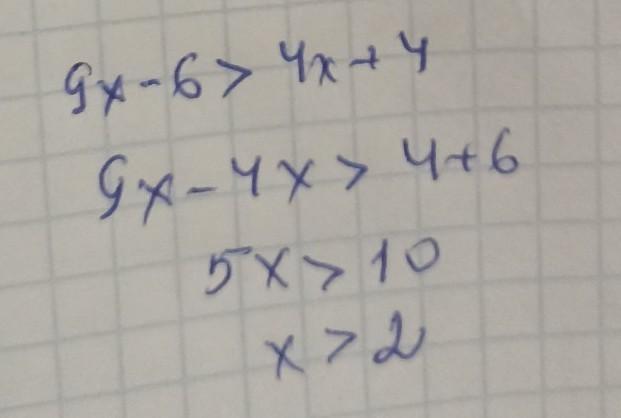 9x-6>4x+4
9x-4x>4+6
5x>10
x>2